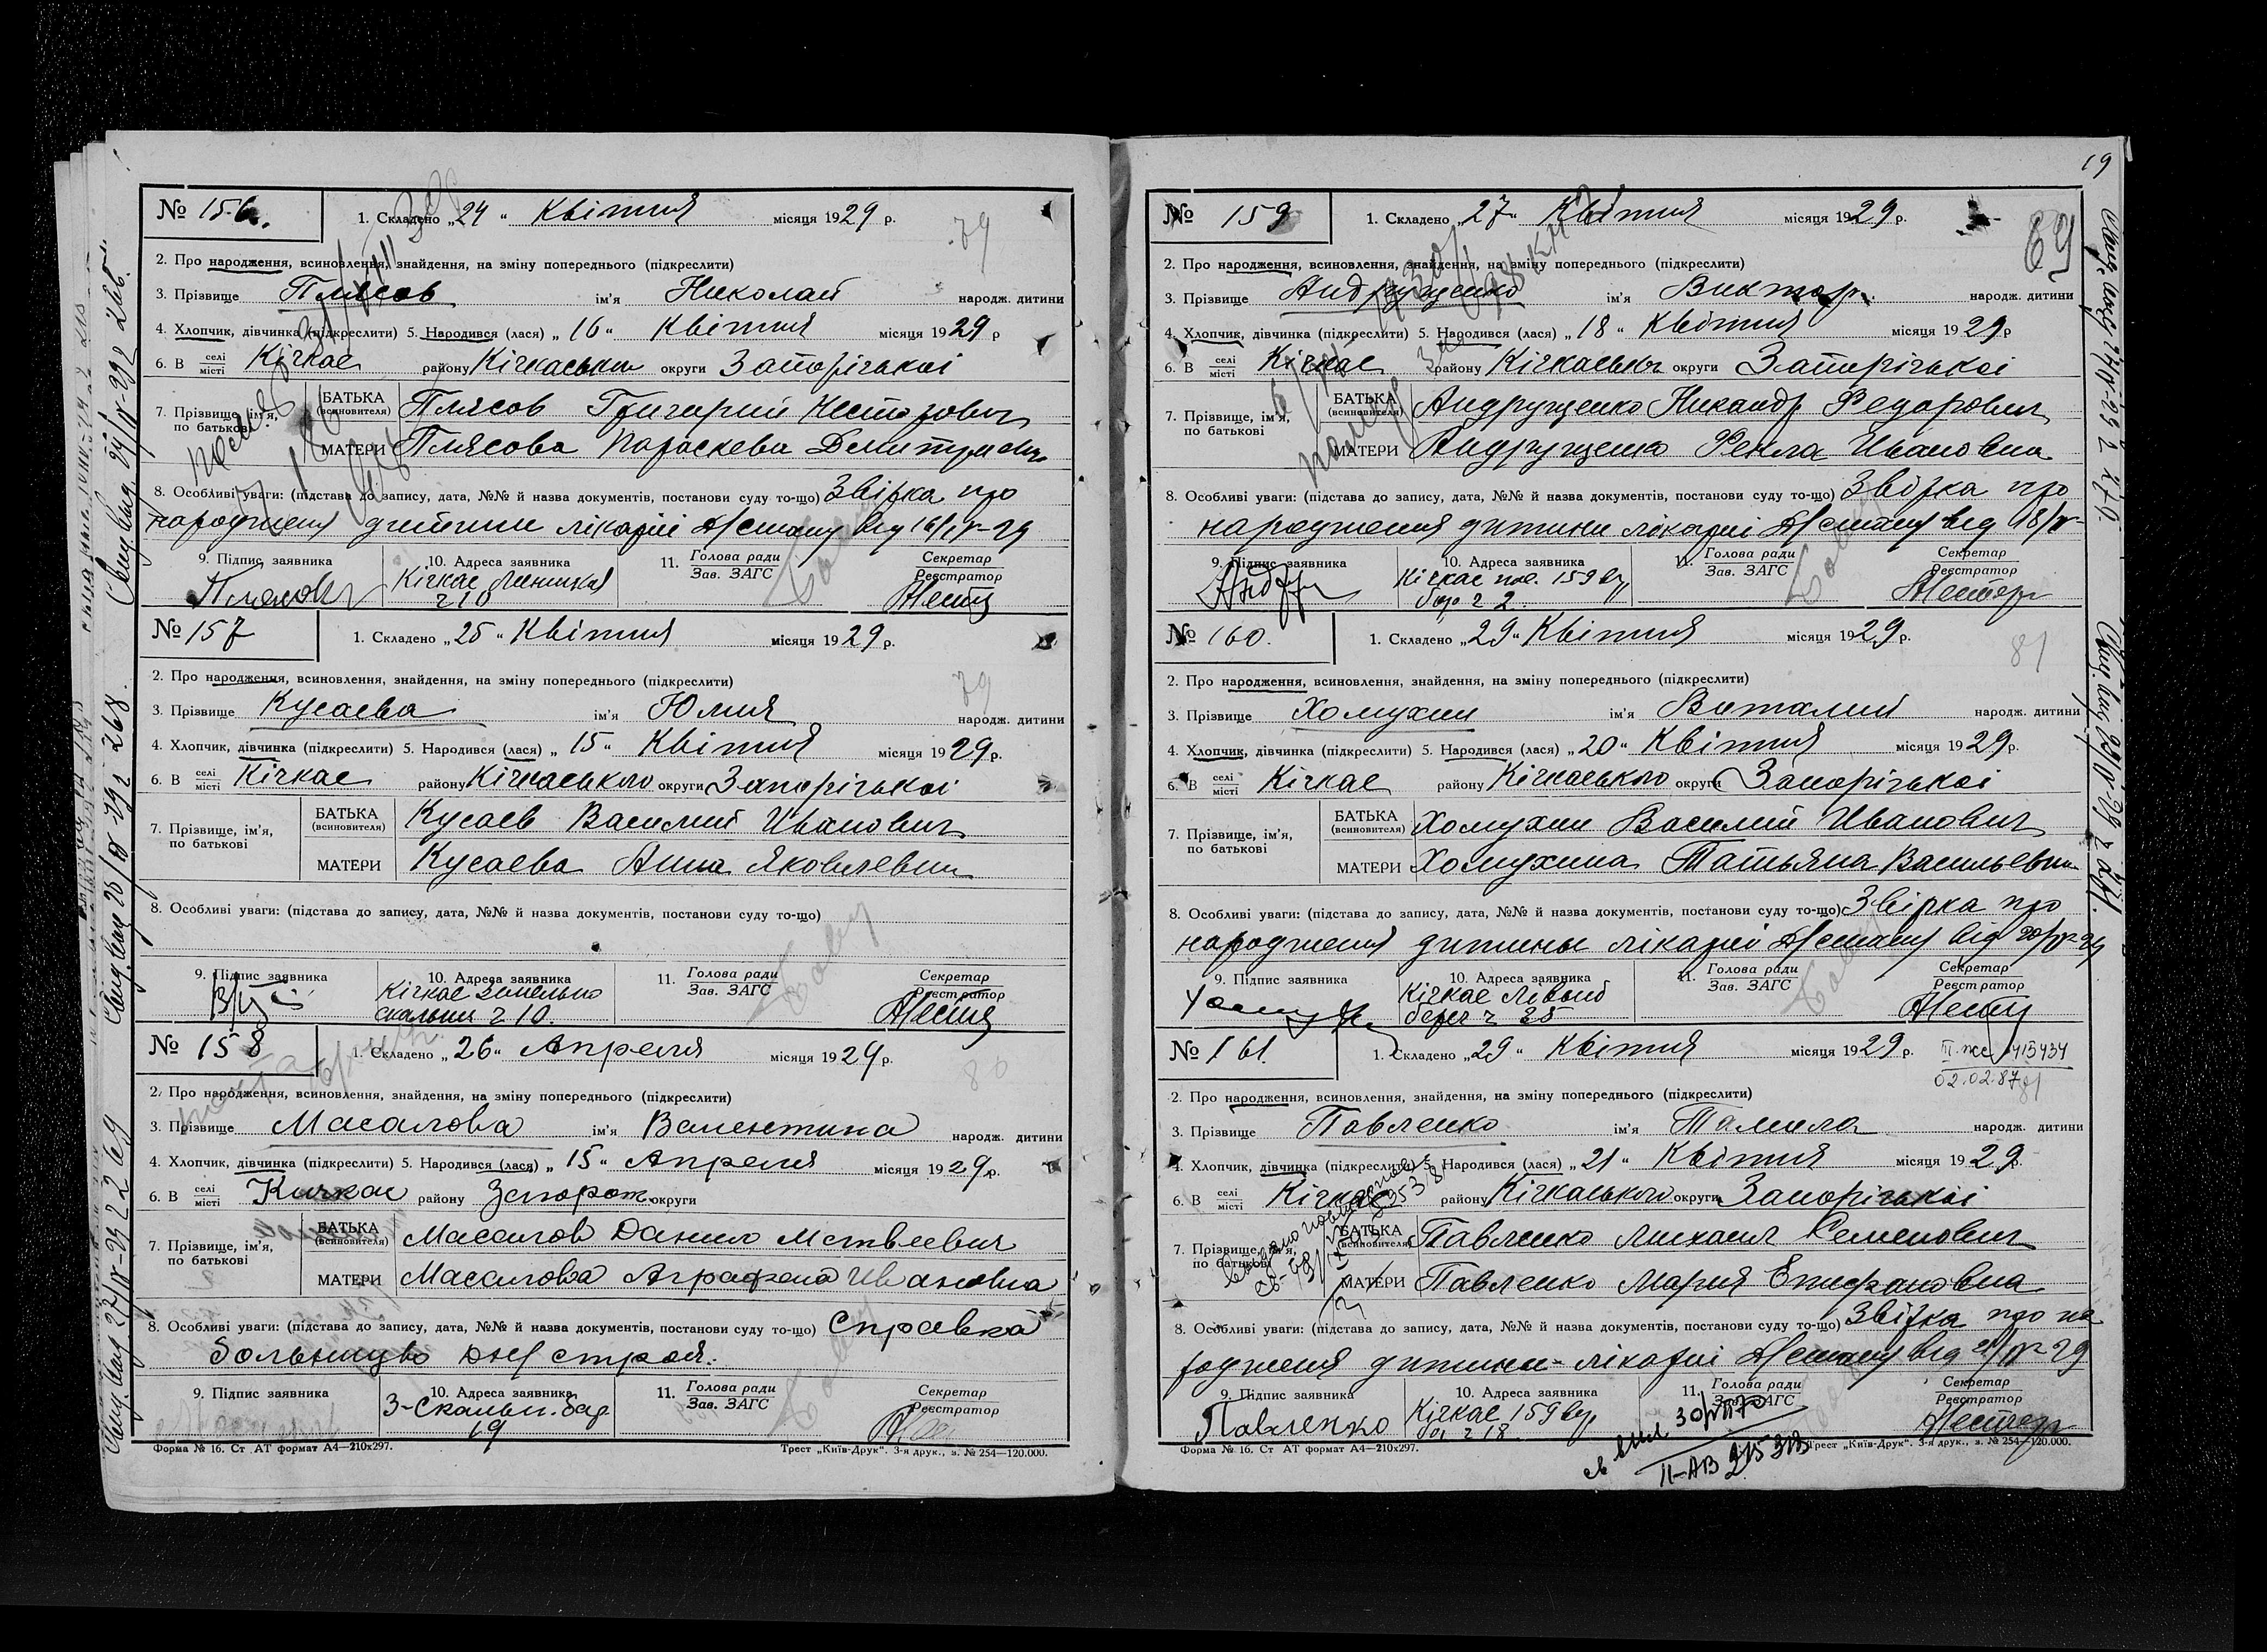 № 156. 1. Складено „24“ Квітня місяця 1929 р.
79
2. Про народження, всиновлення, знайдення, на зміну попереднього (підкреслити)
3. Прізвище Плясов ім'я Николай народж. дитини
4. Хлопчик, дівчинка (підкреслити) 5. Народився (лася) „16“ Квітня місяця 1929 р
6. В селі місті Кічкас району Кічкаського округи Запорізької
7. Прізвище, ім'я, по батькові
БАТЬКА (всиновителя) Плясов Григорий Несторович
МАТЕРИ Плясова Параскева
8. Особливі уваги: (підстава до запису, дата, №№ й назва документів, постанови суду то-що) Звірка про
народження дитини лікарні від 16/IV-29
9. Підпис заявника 10. Адреса заявника 11. Голова ради Зав. ЗАГС Секретар Реєстратор
Кічкас
210
№ 157 1. Складено „25“ Квітня місяця 1929 р.
79
2. Про народження, всиновлення, знайдення, на зміну попереднього (підкреслити)
3. Прізвище Кусаева ім'я Юлия народж. дитини
4. Хлопчик, дівчинка (підкреслити) 5. Народився (лася) „15“ Квітня місяця 1929 р.
6. В селі місті Кічкас району Кічкаського округи Запорізької
7. Прізвище, ім'я, по батькові
БАТЬКА (всиновителя) Кусаев Василий Иванович
МАТЕРИ Кусаева Анна Яковлевна
8. Особливі уваги: (підстава до запису, дата, №№ й назва документів, постанови суду то-що)
9. Підпис заявника 10. Адреса заявника 11. Голова ради Зав. ЗАГС Секретар Реєстратор
Кічкас
№ 158 1. Складено „26“ Апреля місяця 1929 р.
80
2. Про народження, всиновлення, знайдення, на зміну попереднього (підкреслити)
3. Прізвище Масалова ім'я Валентина народж. дитини
4. Хлопчик, дівчинка (підкреслити) 5. Народився (лася) „15“ Апреля місяця 1929 р.
6. В селі місті Кичкас району Запорож округи
7. Прізвище, ім'я, по батькові
БАТЬКА (всиновителя) Масалов Данило Матвеевич
МАТЕРИ Масалова Аграфена Ивановна
8. Особливі уваги: (підстава до запису, дата, №№ й назва документів, постанови суду то-що) Справка
9. Підпис заявника 10. Адреса заявника 11. Голова ради Зав. ЗАГС Секретар Реєстратор
19
Форма № 16. Ст АТ формат А4—210х297. Трест „Київ-Друк“. 3-я друк., з. № 254—120.000.
19
№ 159 1. Складено „27“ Квітня місяця 1929 р.
2. Про народження, всиновлення, знайдення, на зміну попереднього (підкреслити)
3. Прізвище Андрущенко ім'я Виктор народж. дитини
4. Хлопчик, дівчинка (підкреслити) 5. Народився (лася) „18“ Квітня місяця 1929 р
6. В селі місті Кічкас району Кічкаського округи Запорізької
7. Прізвище, ім'я, по батькові
БАТЬКА (всиновителя) Андрущенко Никандр Федорович
МАТЕРИ Андрущенко Фекла Ивановна
8. Особливі уваги: (підстава до запису, дата, №№ й назва документів, постанови суду то-що) Звірка про
народження дитини лікарні від 18/IV-
9. Підпис заявника 10. Адреса заявника 11. Голова ради Зав. ЗАГС Секретар Реєстратор
Кічкас
№ 160. 1. Складено „29“ Квітня місяця 1929 р.
81
2. Про народження, всиновлення, знайдення, на зміну попереднього (підкреслити)
3. Прізвище Хомухин ім'я Виталий народж. дитини
4. Хлопчик, дівчинка (підкреслити) 5. Народився (лася) „20“ Квітня місяця 1929 р.
6. В селі місті Кічкас району Кічкаського округи Запорізької
7. Прізвище, ім'я, по батькові
БАТЬКА (всиновителя) Хомухин Василий Иванович
МАТЕРИ Хомухина Татьяна Васильевна
8. Особливі уваги: (підстава до запису, дата, №№ й назва документів, постанови суду то-що) Звірка про
народження дитины лікарні від 20/IV-29
9. Підпис заявника 10. Адреса заявника 11. Голова ради Зав. ЗАГС Секретар Реєстратор
Кічкас Левый
берег
№ 161. 1. Складено „29“ Квітня місяця 1929 р.
02.02.87
2. Про народження, всиновлення, знайдення, на зміну попереднього (підкреслити)
3. Прізвище Павленко ім'я Тамила народж. дитини
4. Хлопчик, дівчинка (підкреслити) 5. Народився (лася) „21“ Квітня місяця 1929 р.
6. В селі місті Кічкас району Кічкаського округи Запорізької
7. Прізвище, ім'я, по батькові
БАТЬКА (всиновителя) Павленко Михаил Семенович
МАТЕРИ Павленко Мария Епифановна
8. Особливі уваги: (підстава до запису, дата, №№ й назва документів, постанови суду то-що) Звірка про на
родження дитини лікарні від 21/IV-29
9. Підпис заявника 10. Адреса заявника 11. Голова ради Зав. ЗАГС Секретар Реєстратор
Павленко Кічкас
Форма № 16. Ст АТ формат А4—210х297. Трест „Київ-Друк“. 3-я друк., з. № 254—120.000.